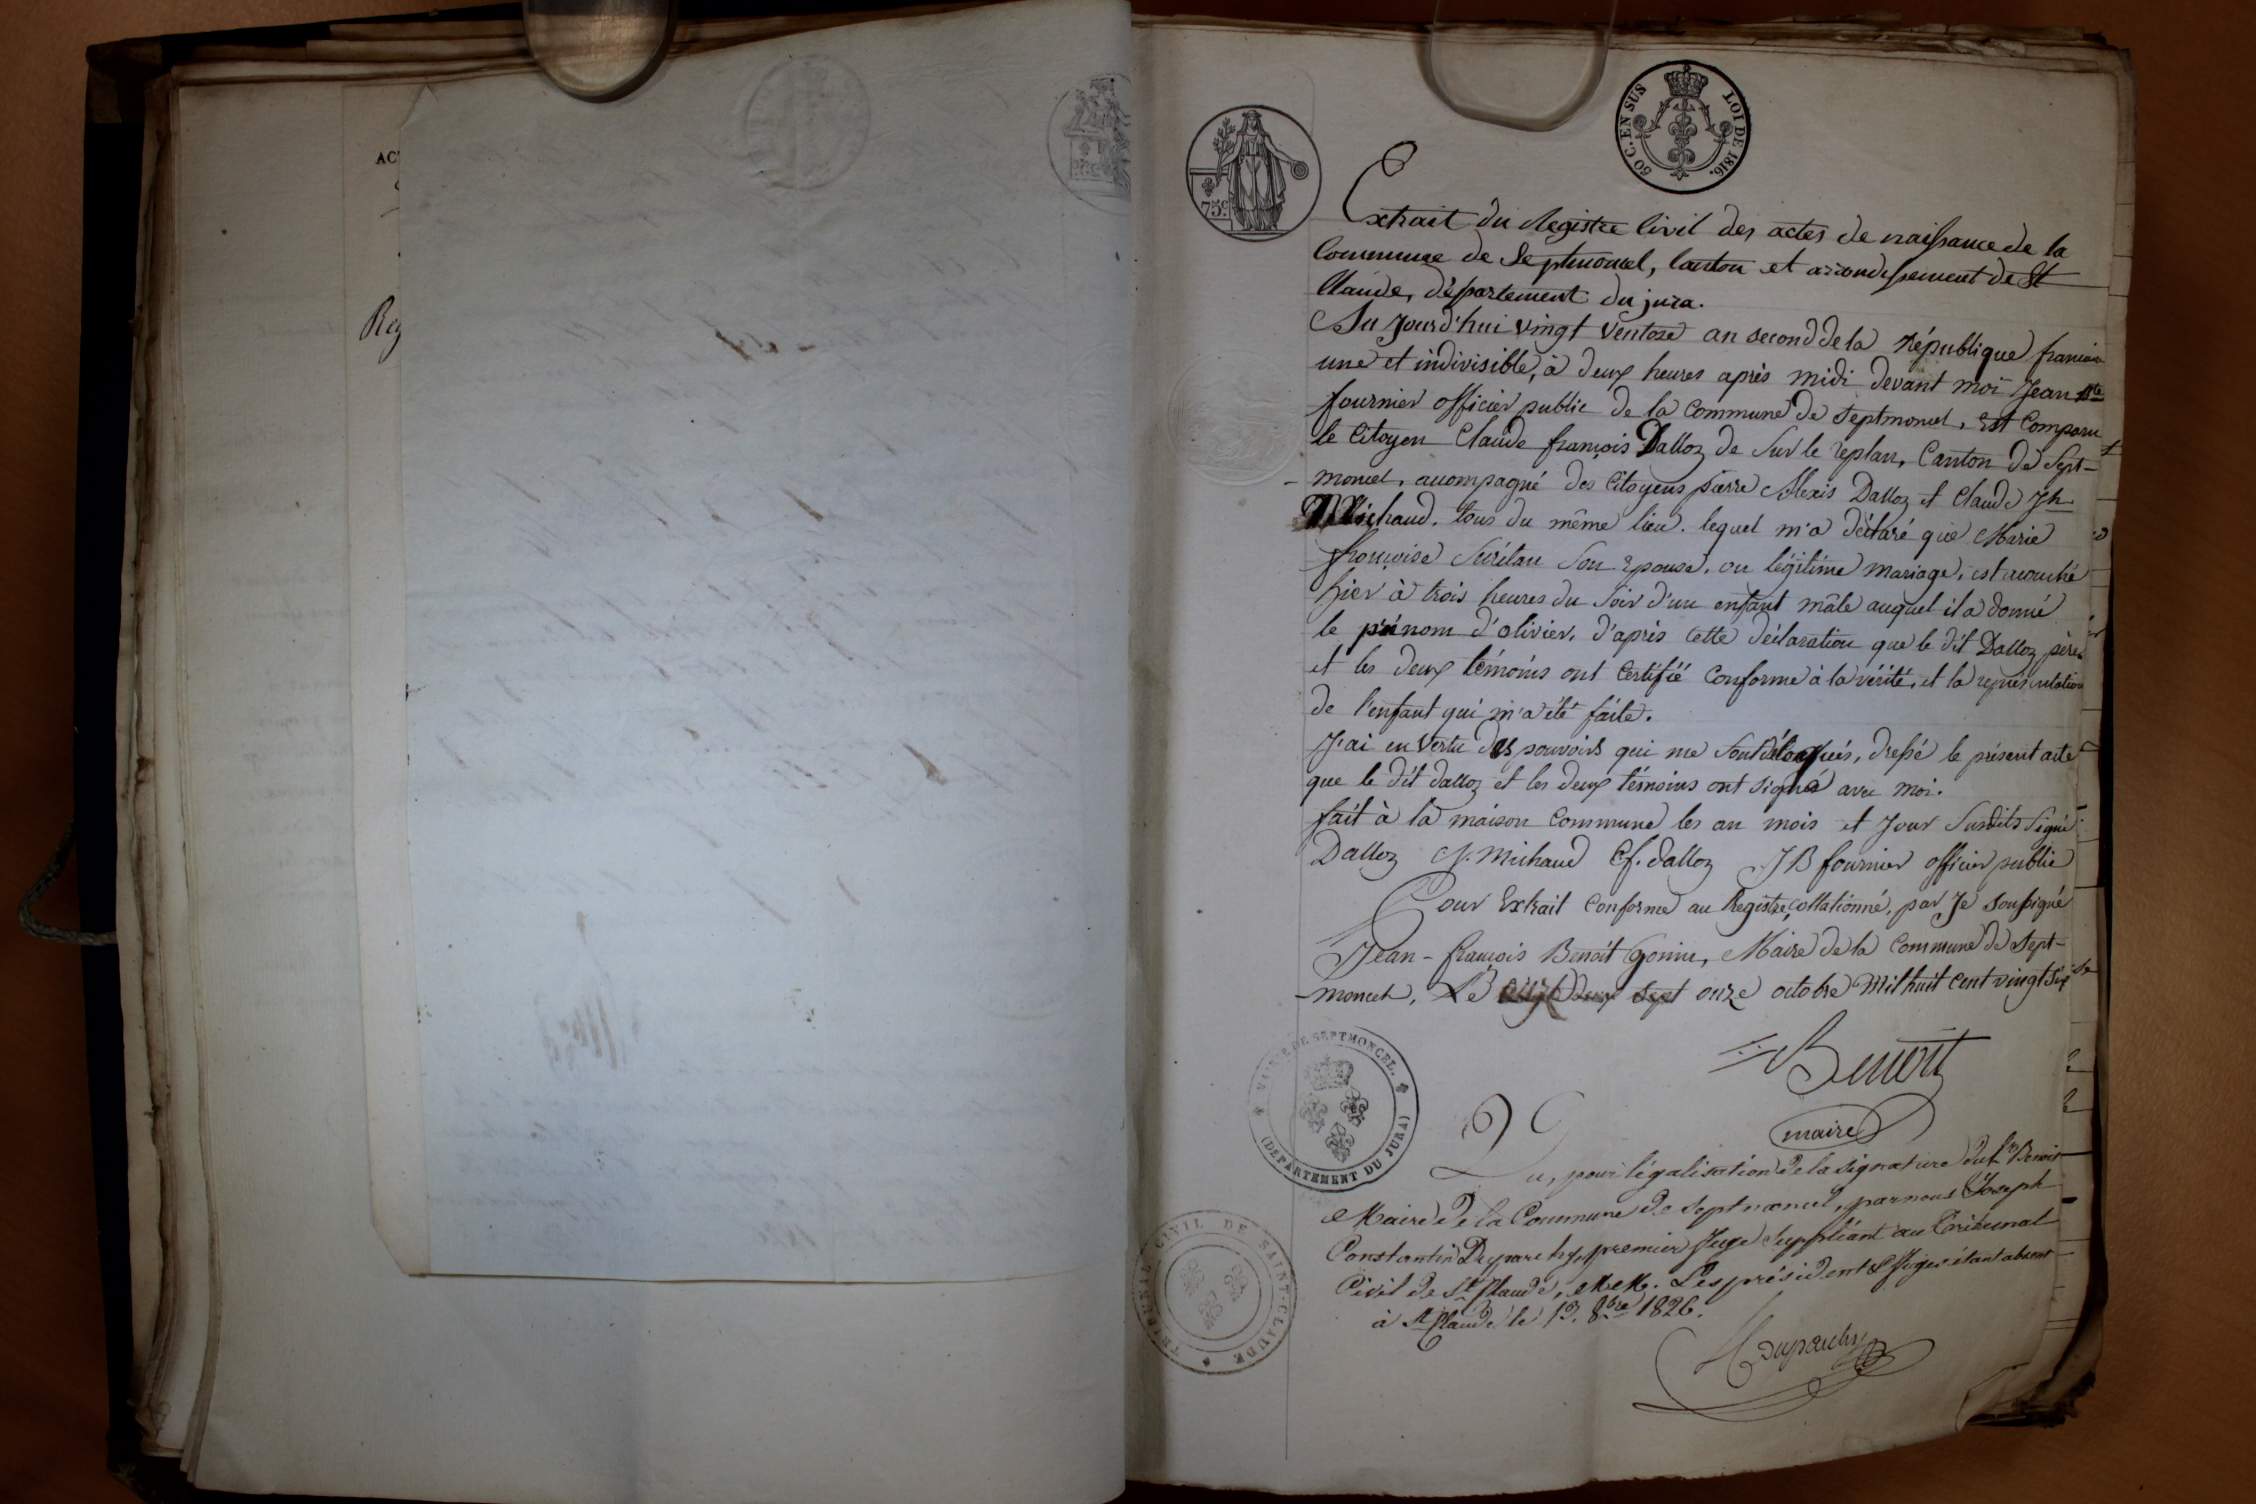 AC
Reg
75c
50 C. EN SUS LOI DE 1816.
Extrait du Registre Civil des actes de naissance de la
Commune de Septmoncel, Canton et arrondissement de St
Claude, département du jura.
Au Jourd'hui vingt ventose an second de la République francaise
une et indivisible, à deux heures après midi devant moi Jean Bte
fournier officier public de la Commune de Septmoncel, est Comparu
le Citoyen Claude françois Dalloz de Sur le replan, Canton de Sept-
-moncel, accompagné des Citoyens pierre Alexis Dalloz et Claude Jh
Michaud. tous du même lieu. lequel m'a déclaré que Marie
françoise Son Epouse, en légitime mariage, est accouché
hier à trois heures du Soir d'un enfant mâle auquel il a donné
le prénom d'olivier. d'après cette déclaration que le dit Dalloz père
et les deux témoins ont Certifié Conforme à la vérité, et la représentation
de l'enfant qui m'a été faite.
J'ai en vertu des pouvoirs qui me Sont délégués, dressé le présent acte
que le dit dalloz et les deux témoins ont signé avec moi.
fait à la maison Commune les an mois et Jour Susdits Signé
Dalloz Cj. Michaud Cf. dalloz JB fournier officier public
Pour Extrait Conforme au Registre, Collationné, par Je Soussigné
Jean-françois Benoit Gonin, Maire de la Commune de Sept-
-moncel, Le sept onze octobre Mil huit Cent vingt Six
Benoit
maire
MAIRIE DE SEPTMONCEL. (DEPARTEMENT DU JURA)
Vu, pour légalisation de la signature du Sr Benoit
Maire de la Commune de Septmoncel, par nous Joseph
Constantin premier Juge Suppléant au Tribunal
Civil de St Claude, MM. Les président & Juges étant absent
à St Claude le 13. 8bre 1826.
TRIBUNAL CIVIL DE SAINT-CLAUDE